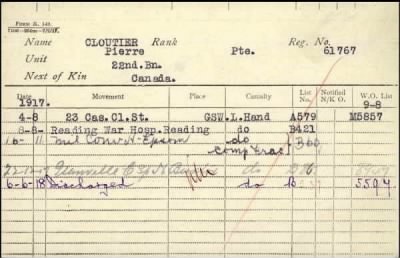 FORM R. 149.
Name CLOUTIER Rank Reg. No.
Pierre Pte. 61767
Unit 22nd.Bn.
Next of Kin Canada.
Date Movement Place Casualty List No. Notified N/K O. W.O. List
1917. 9-8
4-8 23 Cas.Cl.St. GSW.L.Hand A579 M5857
8-8- Reading War Hosp.Reading do B421
16-11 Mil Conv. H. Epsom do
Comp Frac
do
6-6-18 Discharged do B 5594